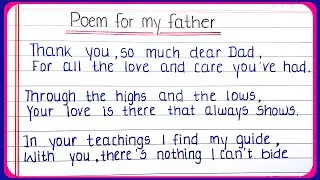 Poem for my father
Thank you, so much dear Dad,
For all the love and care you've had.
Through the highs and the lows,
Your love is there that always shows.
In your teachings I find my guide,
With you, there's nothing I can't bide